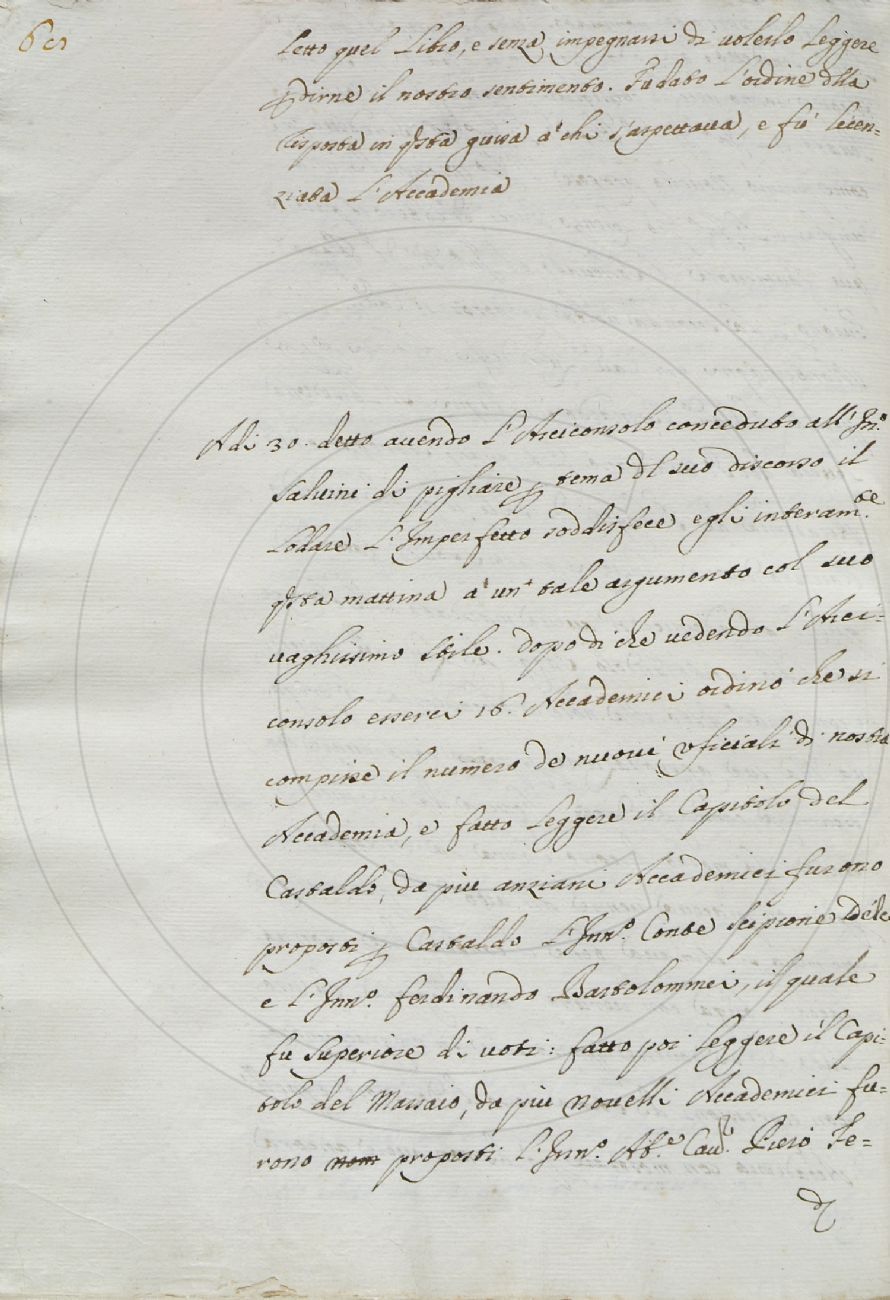 letto quel Libro, e senza impegnarsi di volerlo leggere
p dirne il nostro sentimento. Fu dato l'ordine dlla
risposta in qsta guisa a' chi s'aspettava, e fu' licen=
ziata l'Accademia
Adi 30. detto avendo l'Arciconsolo conceduto all'Inn.º
Salvini di pigliare p tema dl suo discorso il
lodare l'Imperfetto soddisfece egli interam.te
qsta mattina a' un' tale argumento col suo
vaghissimo stile. Dopo di che vedendo l'Arci=
consolo esserci 16. Accademici ordinò che si
compisse il numero de nuovi Uficiali di nostra
Accademia, e fatto leggere il Capitolo del
Castaldo, da più anziani Accademici furono
proposti p Castaldo l'Inn.º Conte Scipione
e l'Inn.º Ferdinando Bartolommei, il quale
fu Superiore di voti: fatto poi leggere il Capi=
tolo del Massaio, da più novelli Accademici fu=
rono nom proposti l'Inn.º Ab.e Cav.r Piero Fe=